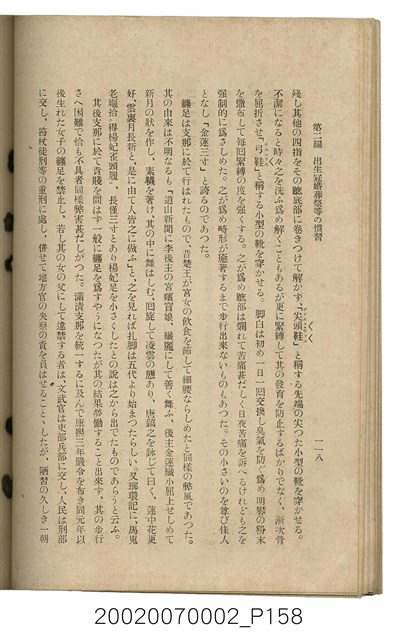 第二編　出生冠婚葬祭等の慣習　　一一八
殘し其他の四指をその蹠底部に卷きつけて緩かす。「尖頭鞋」と稱する先端の尖つた小型の靴を穿かせる。
不潔になると時々之を洗ふ爲め解くこともあるが更に緊縛して其の發育を防止するばかりでなく、漸次骨
を屈折させ、「弓鞋」と稱する小型の靴を穿かせる。脚白は初め一日一回交換し臭氣を防ぐ爲め明礬の粉末
を撒布して每回緊縛の度を强くする。之が爲め蹠部は爛れて苦痛甚だしく日夜苦痛を訴へるけれども之を
强制的に爲さしめた。之が爲め畸形が應著するまで步行出來ないものもあつた。その小さいのを尊び佳人
となし「金蓮三寸」と誇るのであつた。
纏足は支那に於て行はれたもので、昔楚王が宮女の飮食を節して細腰ならしめたと同樣の弊風であつた。
其の由來は不明なるも、道山新聞に李後主の宮嬪窅娘、纖麗にして善く舞ふ、後主金蓮纖小屈上せしめて
新月の狀を作し、素襪を著け、其の中に舞はしむ、囘旋して凌雲の態あり、唐鎬之を詠じて曰く、蓮中花更
好、雲裏月長新と、是に由て人皆之に倣ふ」と、之を見れば扎脚は五代より始まつたらしい。又瑯環記に、馬嵬
老媼拾得楊妃雀頭履、長僅三寸とあり楊妃足を小さくしたとの說は之から出でたものであらうと云ふ。
其後支那に於て貴賤を問はず一般に纏足を爲すやうになつたが其の結果勞働すること出來ず、其の步行
さへ困難で恰も不具者同樣弊害甚だしかつた。滿淸支那を統一するに及んで康熙三年嚴令を布き同元年以
後生れた女子の纏足を禁止し、若し其の女の父にして違禁する者は、文武官は吏部兵部に交し、人民は刑部
に交し、笞杖徒刑等の重刑に處し、併せて地方官の失察の責を負はせること、したが、陋習の久しき一朝
20020070002_P158